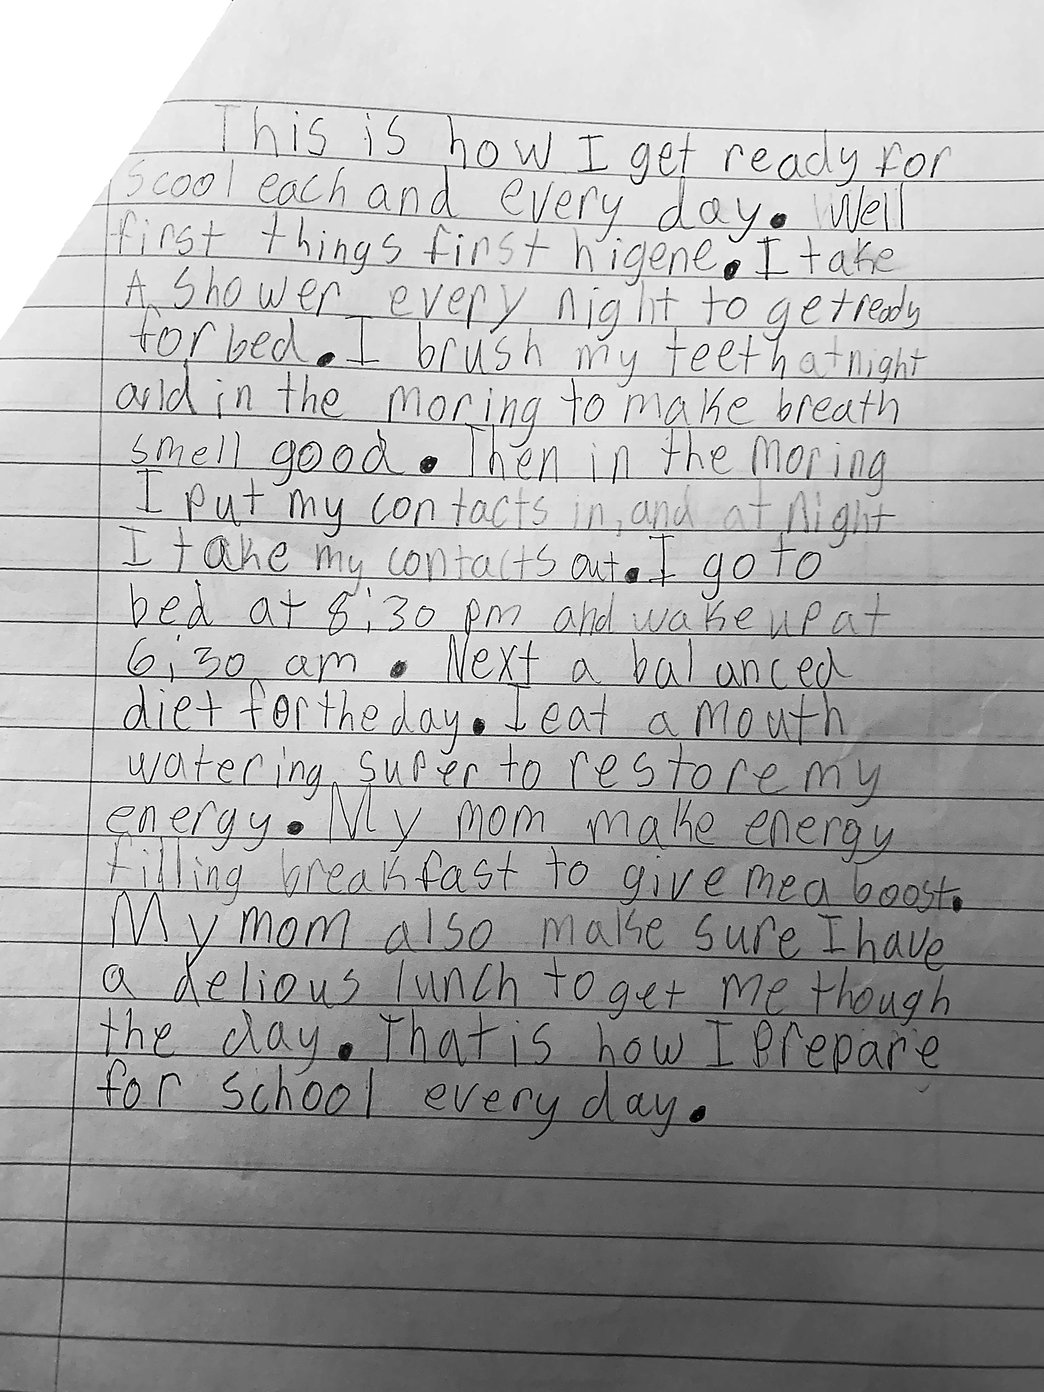 This is how I get ready for
scool each and every day. Well
first things first higene. I take
A shower every night to get ready
for bed. I brush my teeth at night
and in the moring to make breath
smell good. Then in the moring
I put my contacts in, and at night
I take my contacts out. I go to
bed at 8:30 pm and wake up at
6:30 am. Next a balanced
diet for the day. I eat a mouth
watering super to restore my
energy. My mom make energy
filling breakfast to give me a boost.
My mom also make sure I have
a delious lunch to get me though
the day. That is how I prepare
for school every day.